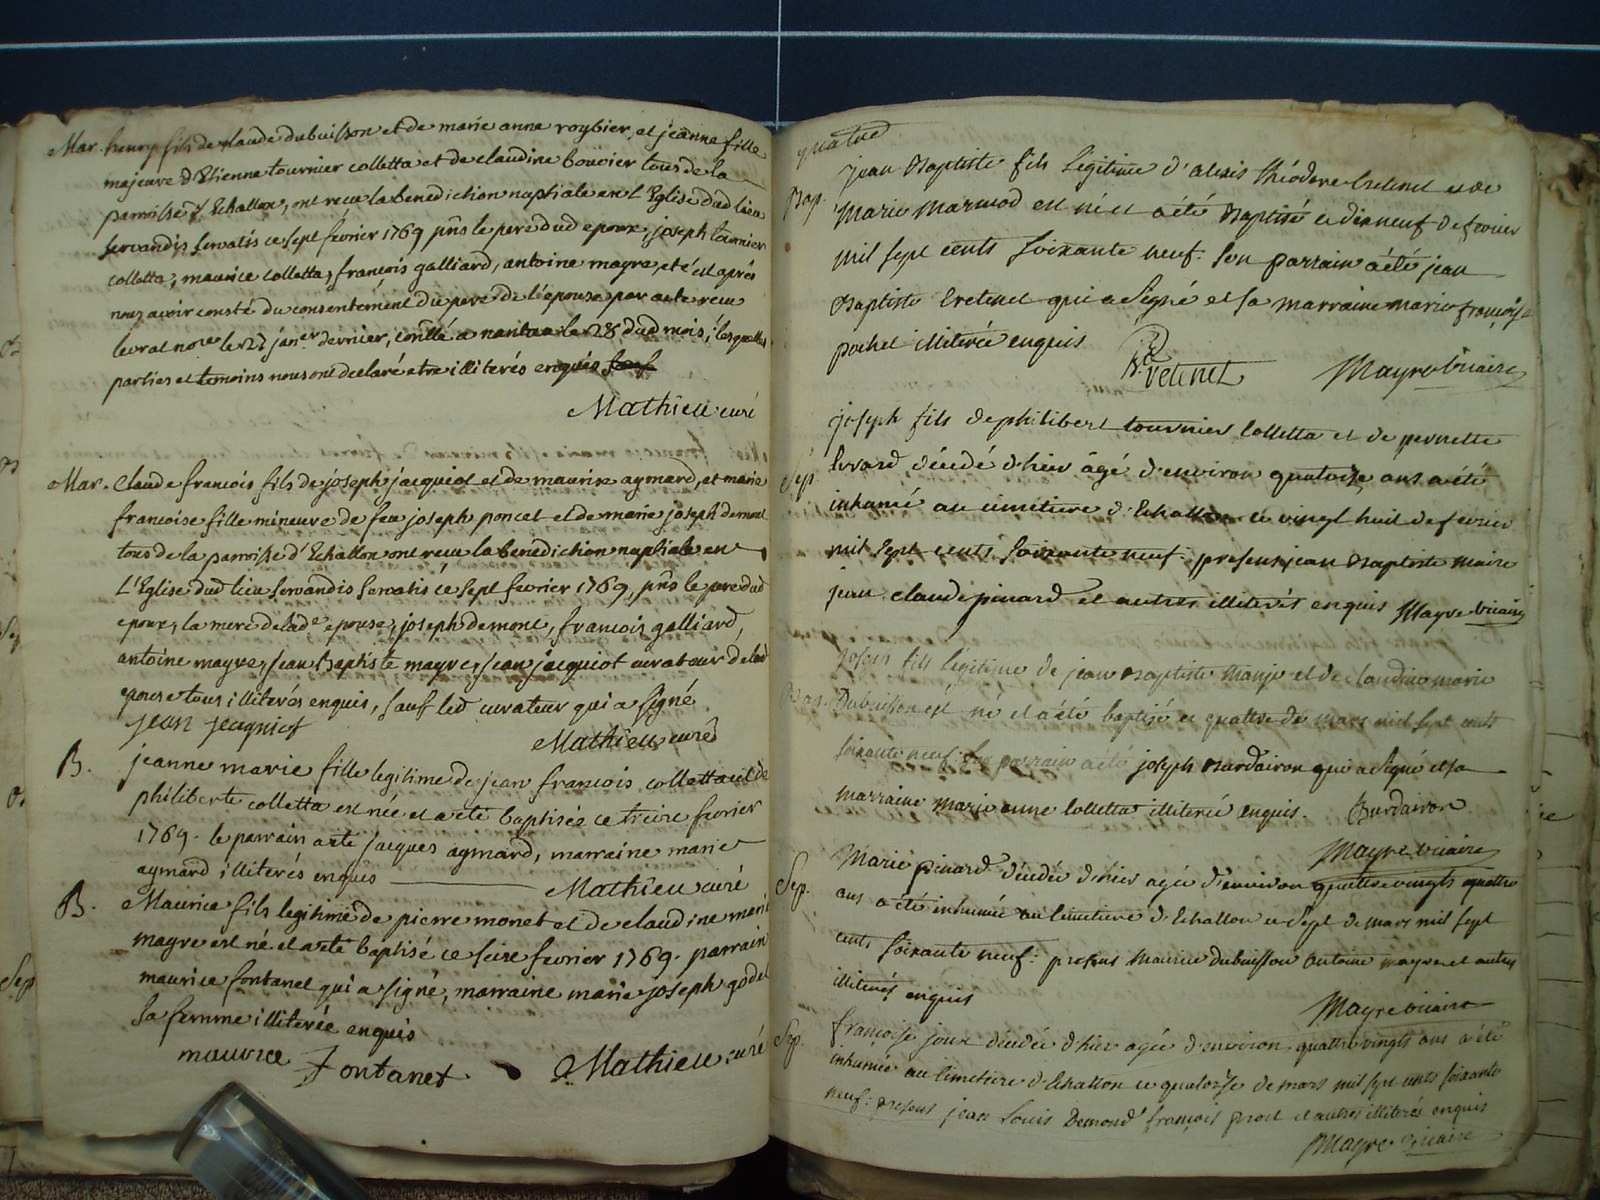 Mar. henry fils de claude dubuisson et de marie anne roybier, et jeanne fille
majeure d'Etienne tournier colletta et de claudine bouvier tous de la
paroisse d'Echallon, ont reçu la benediction nuptiale en l'Eglise dud lieu
servandis servatis ce sept fevrier 1769 pñts le pere dud epoux, joseph tournier
colletta, maurice colletta, françois galliard, antoine mayre, et c'est après
nous avoir consté du consentement du pere de l'épouse par acte reçu
levrat nore le 27 janer dernier, conllé a nantua le 28 dud mois, lesquelles
parties et temoins nous ont declaré etre illiterés enquis sauf
Mathieu curé
Mar. Claude francois fils de joseph jacquiot et de maurise aymard, et marie
francoise fille mineure de feu joseph poncet et de marie joseph demont
tous de la paroisse d'Echallon ont reçu la benediction nuptiale en
L'Eglise dud lieu servandis servatis ce sept fevrier 1769, pñts le pere dud
epoux, la mere de lade epouse, joseph demont, francois galliard,
antoine mayre, jean baptiste mayre, jean jacquiot curateur de lad
epouse tous illiterés enquis, sauf led curateur qui a signé
jean jacquiot
Mathieu curé
B. jeanne marie fille legitime de jean francois colletta et de
philiberte colletta est née et a eté baptisée ce treize fevrier
1769. le parrain a eté jacques aymard, marraine marie
aymard illiterés enquis Mathieu curé
B. Maurice fils legitime de pierre monet et de claudine marie
mayre est né et a eté baptisé ce seize fevrier 1769. parrain
maurice fontanet qui a signé, marraine marie joseph godet
sa femme illiterée enquis
maurice Fontanet Mathieu curé
quatre
jean Baptiste fils legitime d'alexis théodore cretenet et de
Bap. Marie Marmod est né et a été Baptisé ce dixneuf de fevrier
mil sept cents soixante neuf. Son parrain a été jean
Baptiste Cretenet qui a Signé et sa marraine marie françoise
pochet illiterée enquis
Cretenet Mayre vicaire
joseph fils de philibert tournier colletta et de pernette
Sép. livrard décédé d'hier âgé d'environ quatorze ans a été
inhumé au cimetiere d'Echallon ce vingt huit de fevrier
mil sept cents soixante neuf. presens jean Baptiste maire
jean claude pinard et autres illiterés enquis Mayre vicaire
joseph fils légitime de jean Baptiste Manjo et de claudine marie
Bap. Dubuisson est né et a été baptisé ce quattre de mars mil sept cents
soixante neuf. Son parrain a été joseph Burdairon qui a signé et sa
marraine marie anne Colletta illiterée enquis. Burdairon
Mayre vicaire
Marie pinard décédée d'hier agée d'environ quattre vingts quattre
Sep. ans a été inhumée au cimetiere d'Echallon ce sept de mars mil sept
cents soixante neuf. presens Maurice dubuisson Antoine mayre et autres
illiterés enquis
Mayre vicaire
françoise joux décédée d'hier agée d'environ quattre vingts ans a été
Sep. inhumée au cimetiere d'Echallon ce quatorze de mars mil sept cents soixante
neuf. presens jean Louis Demond françois prost et autres illiterés enquis
Mayre vicaire